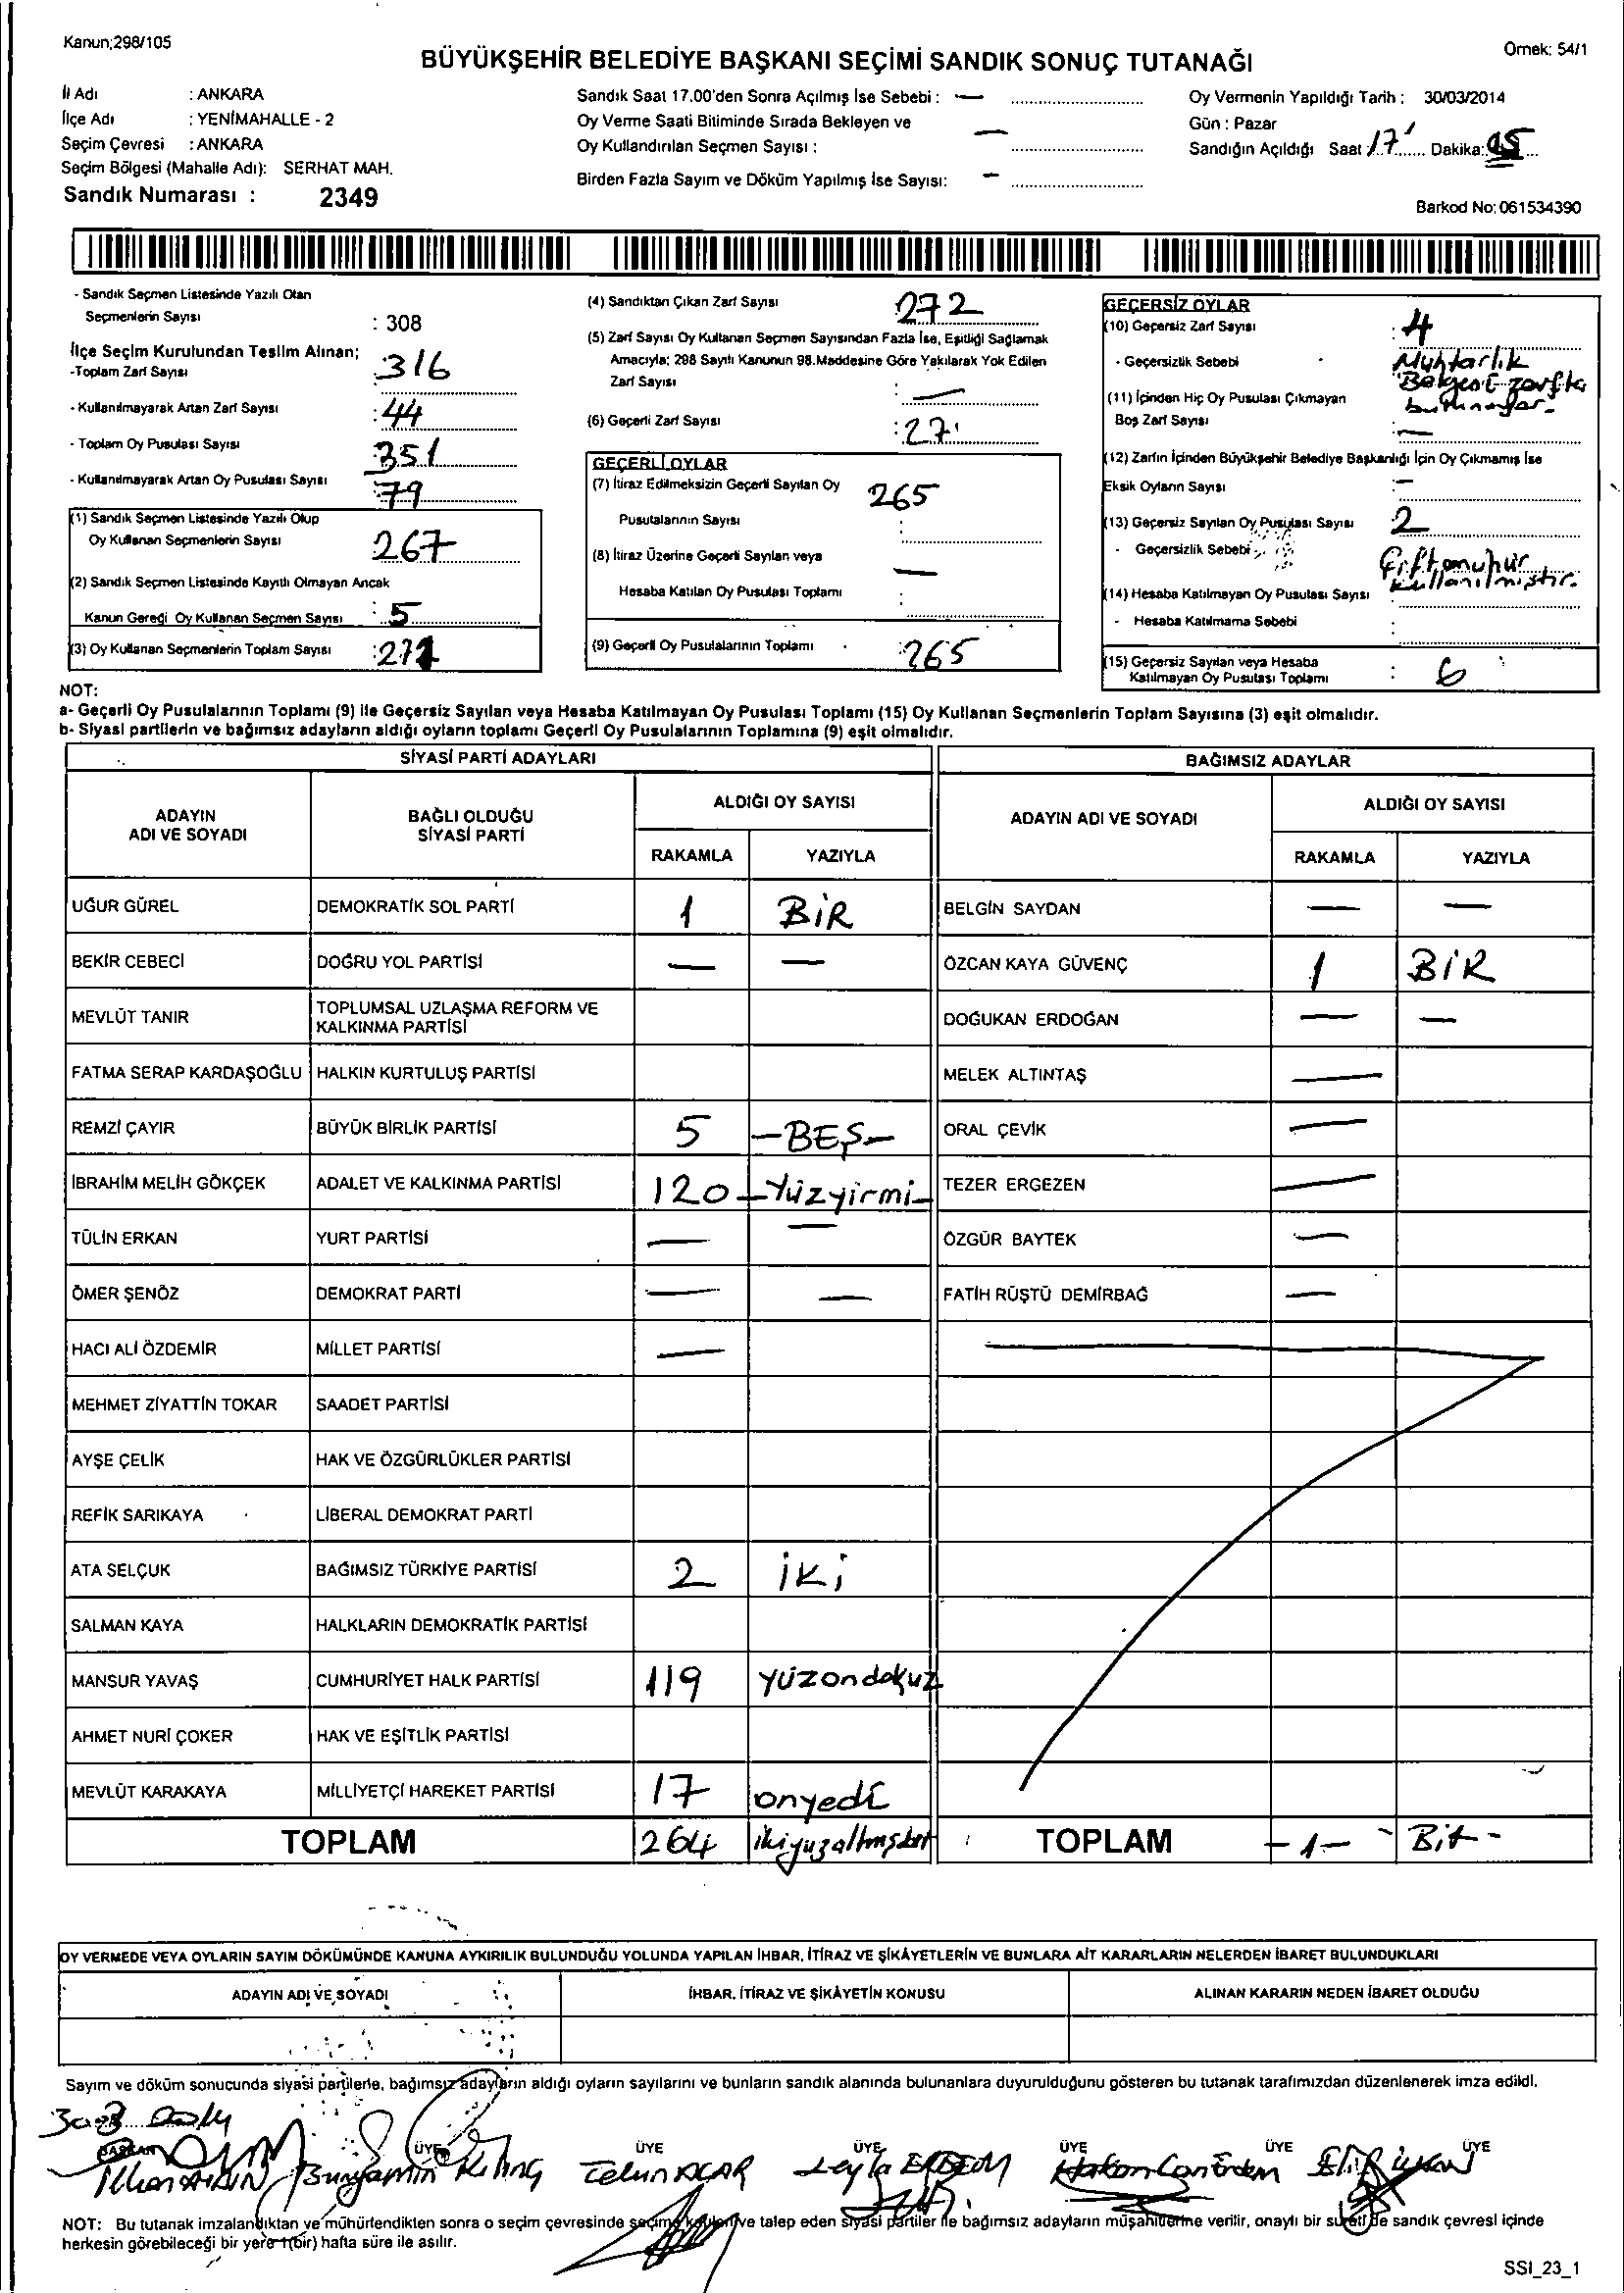 Kanun;298/105
Örnek: 54/1
BÜYÜKŞEHİR BELEDİYE BAŞKANI SEÇİMİ SANDIK SONUÇ TUTANAĞI
İl Adı : ANKARA
İlçe Adı : YENİMAHALLE - 2
Seçim Çevresi : ANKARA
Seçim Bölgesi (Mahalle Adı): SERHAT MAH.
Sandık Numarası : 2349
Sandık Saat 17.00'den Sonra Açılmış İse Sebebi : —
Oy Verme Saati Bitiminde Sırada Bekleyen ve
Oy Kullandırılan Seçmen Sayısı : —
Birden Fazla Sayım ve Döküm Yapılmış İse Sayısı: —
Oy Vermenin Yapıldığı Tarih : 30/03/2014
Gün : Pazar
Sandığın Açıldığı Saat 17 Dakika:
Barkod No: 061534390
- Sandık Seçmen Listesinde Yazılı Olan
Seçmenlerin Sayısı : 308
İlçe Seçim Kurulundan Teslim Alınan;
-Toplam Zarf Sayısı : 316
- Kullanılmayarak Artan Zarf Sayısı : 44
- Toplam Oy Pusulası Sayısı 351
- Kullanılmayarak Artan Oy Pusulası Sayısı : 79
(1) Sandık Seçmen Listesinde Yazılı Olup
Oy Kullanan Seçmenlerin Sayısı 267
(2) Sandık Seçmen Listesinde Kayıtlı Olmayan Ancak
Kanun Gereği Oy Kullanan Seçmen Sayısı : 5
(3) Oy Kullanan Seçmenlerin Toplam Sayısı :
(4) Sandıktan Çıkan Zarf Sayısı 272
(5) Zarf Sayısı Oy Kullanan Seçmen Sayısından Fazla İse, Eşitliği Sağlamak
Amacıyla; 298 Sayılı Kanunun 98.Maddesine Göre Yakılarak Yok Edilen
Zarf Sayısı : —
(6) Geçerli Zarf Sayısı :
GEÇERLİ OYLAR
(7) İtiraz Edilmeksizin Geçerli Sayılan Oy
Pusulalarının Sayısı : 265
(8) İtiraz Üzerine Geçerli Sayılan veya
Hesaba Katılan Oy Pusulası Toplamı : —
(9) Geçerli Oy Pusulalarının Toplamı : 265
GEÇERSİZ OYLAR
(10) Geçersiz Zarf Sayısı : 4
- Geçersizlik Sebebi : Muhtarlık
Belgesi zarfta
(11) İçinden Hiç Oy Pusulası Çıkmayan
Boş Zarf Sayısı : —
(12) Zarfın İçinden Büyükşehir Belediye Başkanlığı İçin Oy Çıkmamış İse
Eksik Oyların Sayısı : —
(13) Geçersiz Sayılan Oy Pusulası Sayısı 2
- Geçersizlik Sebebi Çift mühür
kullanılmıştır.
(14) Hesaba Katılmayan Oy Pusulası Sayısı :
- Hesaba Katılmama Sebebi :
(15) Geçersiz Sayılan veya Hesaba
Katılmayan Oy Pusulası Toplamı : 6
NOT:
a- Geçerli Oy Pusulalarının Toplamı (9) ile Geçersiz Sayılan veya Hesaba Katılmayan Oy Pusulası Toplamı (15) Oy Kullanan Seçmenlerin Toplam Sayısına (3) eşit olmalıdır.
b- Siyasi partilerin ve bağımsız adayların aldığı oyların toplamı Geçerli Oy Pusulalarının Toplamına (9) eşit olmalıdır.
SİYASİ PARTİ ADAYLARI
BAĞIMSIZ ADAYLAR
ADAYIN
ADI VE SOYADI
BAĞLI OLDUĞU
SİYASİ PARTİ
ALDIĞI OY SAYISI
RAKAMLA YAZIYLA
ADAYIN ADI VE SOYADI
ALDIĞI OY SAYISI
RAKAMLA YAZIYLA
UĞUR GÜREL DEMOKRATİK SOL PARTİ 1 BİR
BELGİN SAYDAN — —
BEKİR CEBECİ DOĞRU YOL PARTİSİ — —
ÖZCAN KAYA GÜVENÇ 1 BİR
MEVLÜT TANIR TOPLUMSAL UZLAŞMA REFORM VE
KALKINMA PARTİSİ
DOĞUKAN ERDOĞAN — —
FATMA SERAP KARDAŞOĞLU HALKIN KURTULUŞ PARTİSİ
MELEK ALTINTAŞ —
REMZİ ÇAYIR BÜYÜK BİRLİK PARTİSİ 5 -BEŞ-
ORAL ÇEVİK —
İBRAHİM MELİH GÖKÇEK ADALET VE KALKINMA PARTİSİ 120 -Yüzyirmi-
TEZER ERGEZEN —
TÜLİN ERKAN YURT PARTİSİ — —
ÖZGÜR BAYTEK —
ÖMER ŞENÖZ DEMOKRAT PARTİ — —
FATİH RÜŞTÜ DEMİRBAĞ —
HACI ALİ ÖZDEMİR MİLLET PARTİSİ —
MEHMET ZİYATTİN TOKAR SAADET PARTİSİ
AYŞE ÇELİK HAK VE ÖZGÜRLÜKLER PARTİSİ
REFİK SARIKAYA LİBERAL DEMOKRAT PARTİ
ATA SELÇUK BAĞIMSIZ TÜRKİYE PARTİSİ 2 iki
SALMAN KAYA HALKLARIN DEMOKRATİK PARTİSİ
MANSUR YAVAŞ CUMHURİYET HALK PARTİSİ 119 yüzondokuz
AHMET NURİ ÇOKER HAK VE EŞİTLİK PARTİSİ
MEVLÜT KARAKAYA MİLLİYETÇİ HAREKET PARTİSİ 17 onyedi
TOPLAM 264 ikiyüzaltmışdört
TOPLAM -1- - Bir -
OY VERMEDE VEYA OYLARIN SAYIM DÖKÜMÜNDE KANUNA AYKIRILIK BULUNDUĞU YOLUNDA YAPILAN İHBAR, İTİRAZ VE ŞİKÂYETLERİN VE BUNLARA AİT KARARLARIN NELERDEN İBARET BULUNDUKLARI
ADAYIN ADI VE SOYADI
İHBAR, İTİRAZ VE ŞİKÂYETİN KONUSU
ALINAN KARARIN NEDEN İBARET OLDUĞU
Sayım ve döküm sonucunda siyasi partilerle, bağımsız adayların aldığı oyların sayılarını ve bunların sandık alanında bulunanlara duyurulduğunu gösteren bu tutanak tarafımızdan düzenlenerek imza edildi.
BAŞKAN ÜYE ÜYE ÜYE ÜYE ÜYE ÜYE
Bünyamin Kılınç
Leyla ERDEM
Hakan Can Erdem
NOT: Bu tutanak imzalandıktan ve mühürlendikten sonra o seçim çevresinde seçime katılan ve talep eden siyasi partiler ile bağımsız adayların müşahitlerine verilir, onaylı bir sureti de sandık çevresi içinde
herkesin görebileceği bir yere 1(bir) hafta süre ile asılır.
SSI_23_1